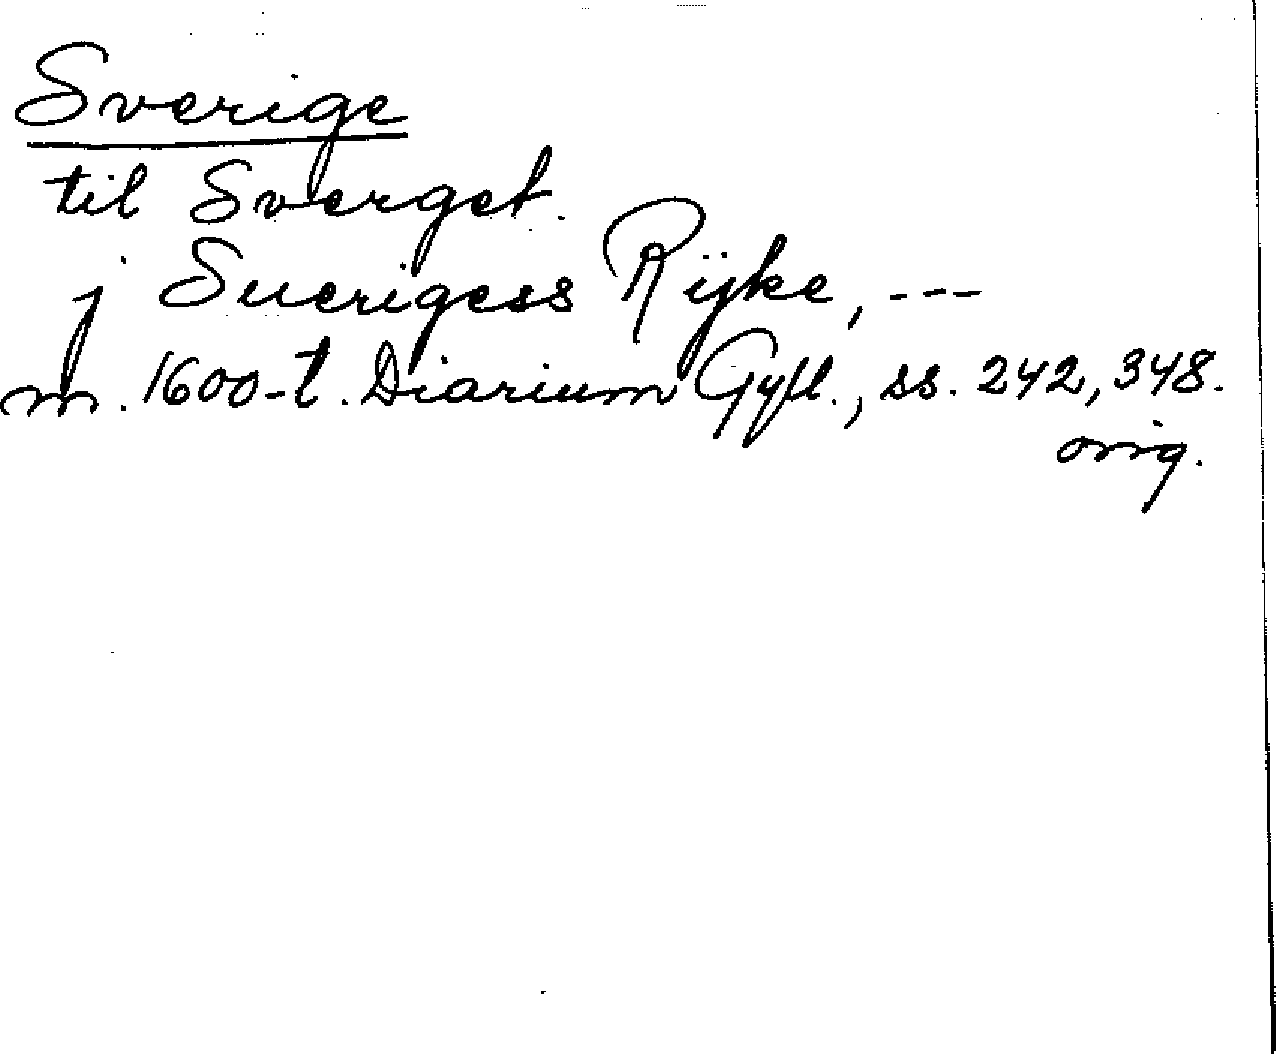 Sverige
til Sverget.
j Suerigess Rijke, ---
m. 1600-t. Diarium Gyll., ss. 242, 348.
orig.